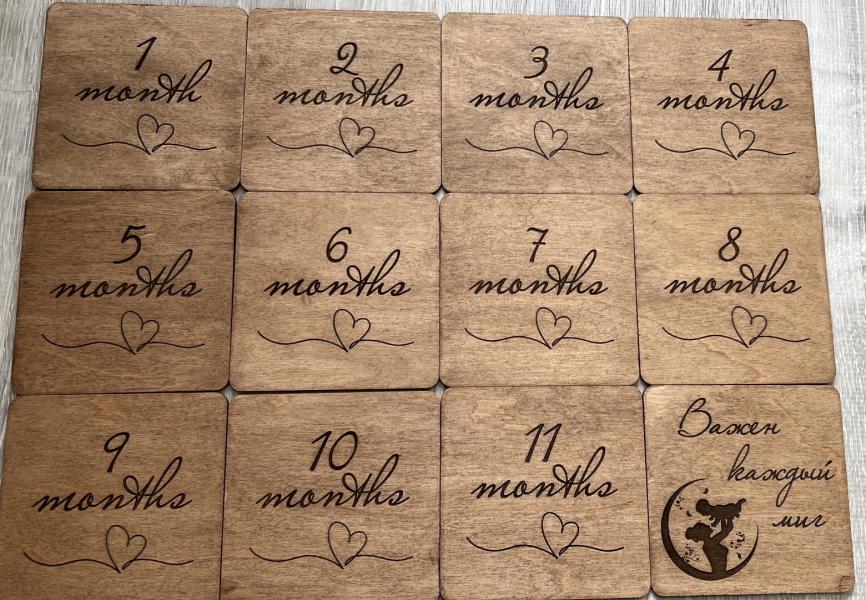 1
month
2
months
3
months
4
months
5
months
6
months
7
months
8
months
9
months
10
months
11
months
Важен
каждый
миг